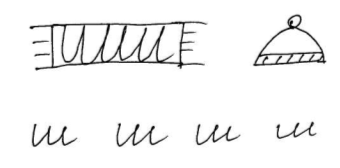 ш ш ш ш